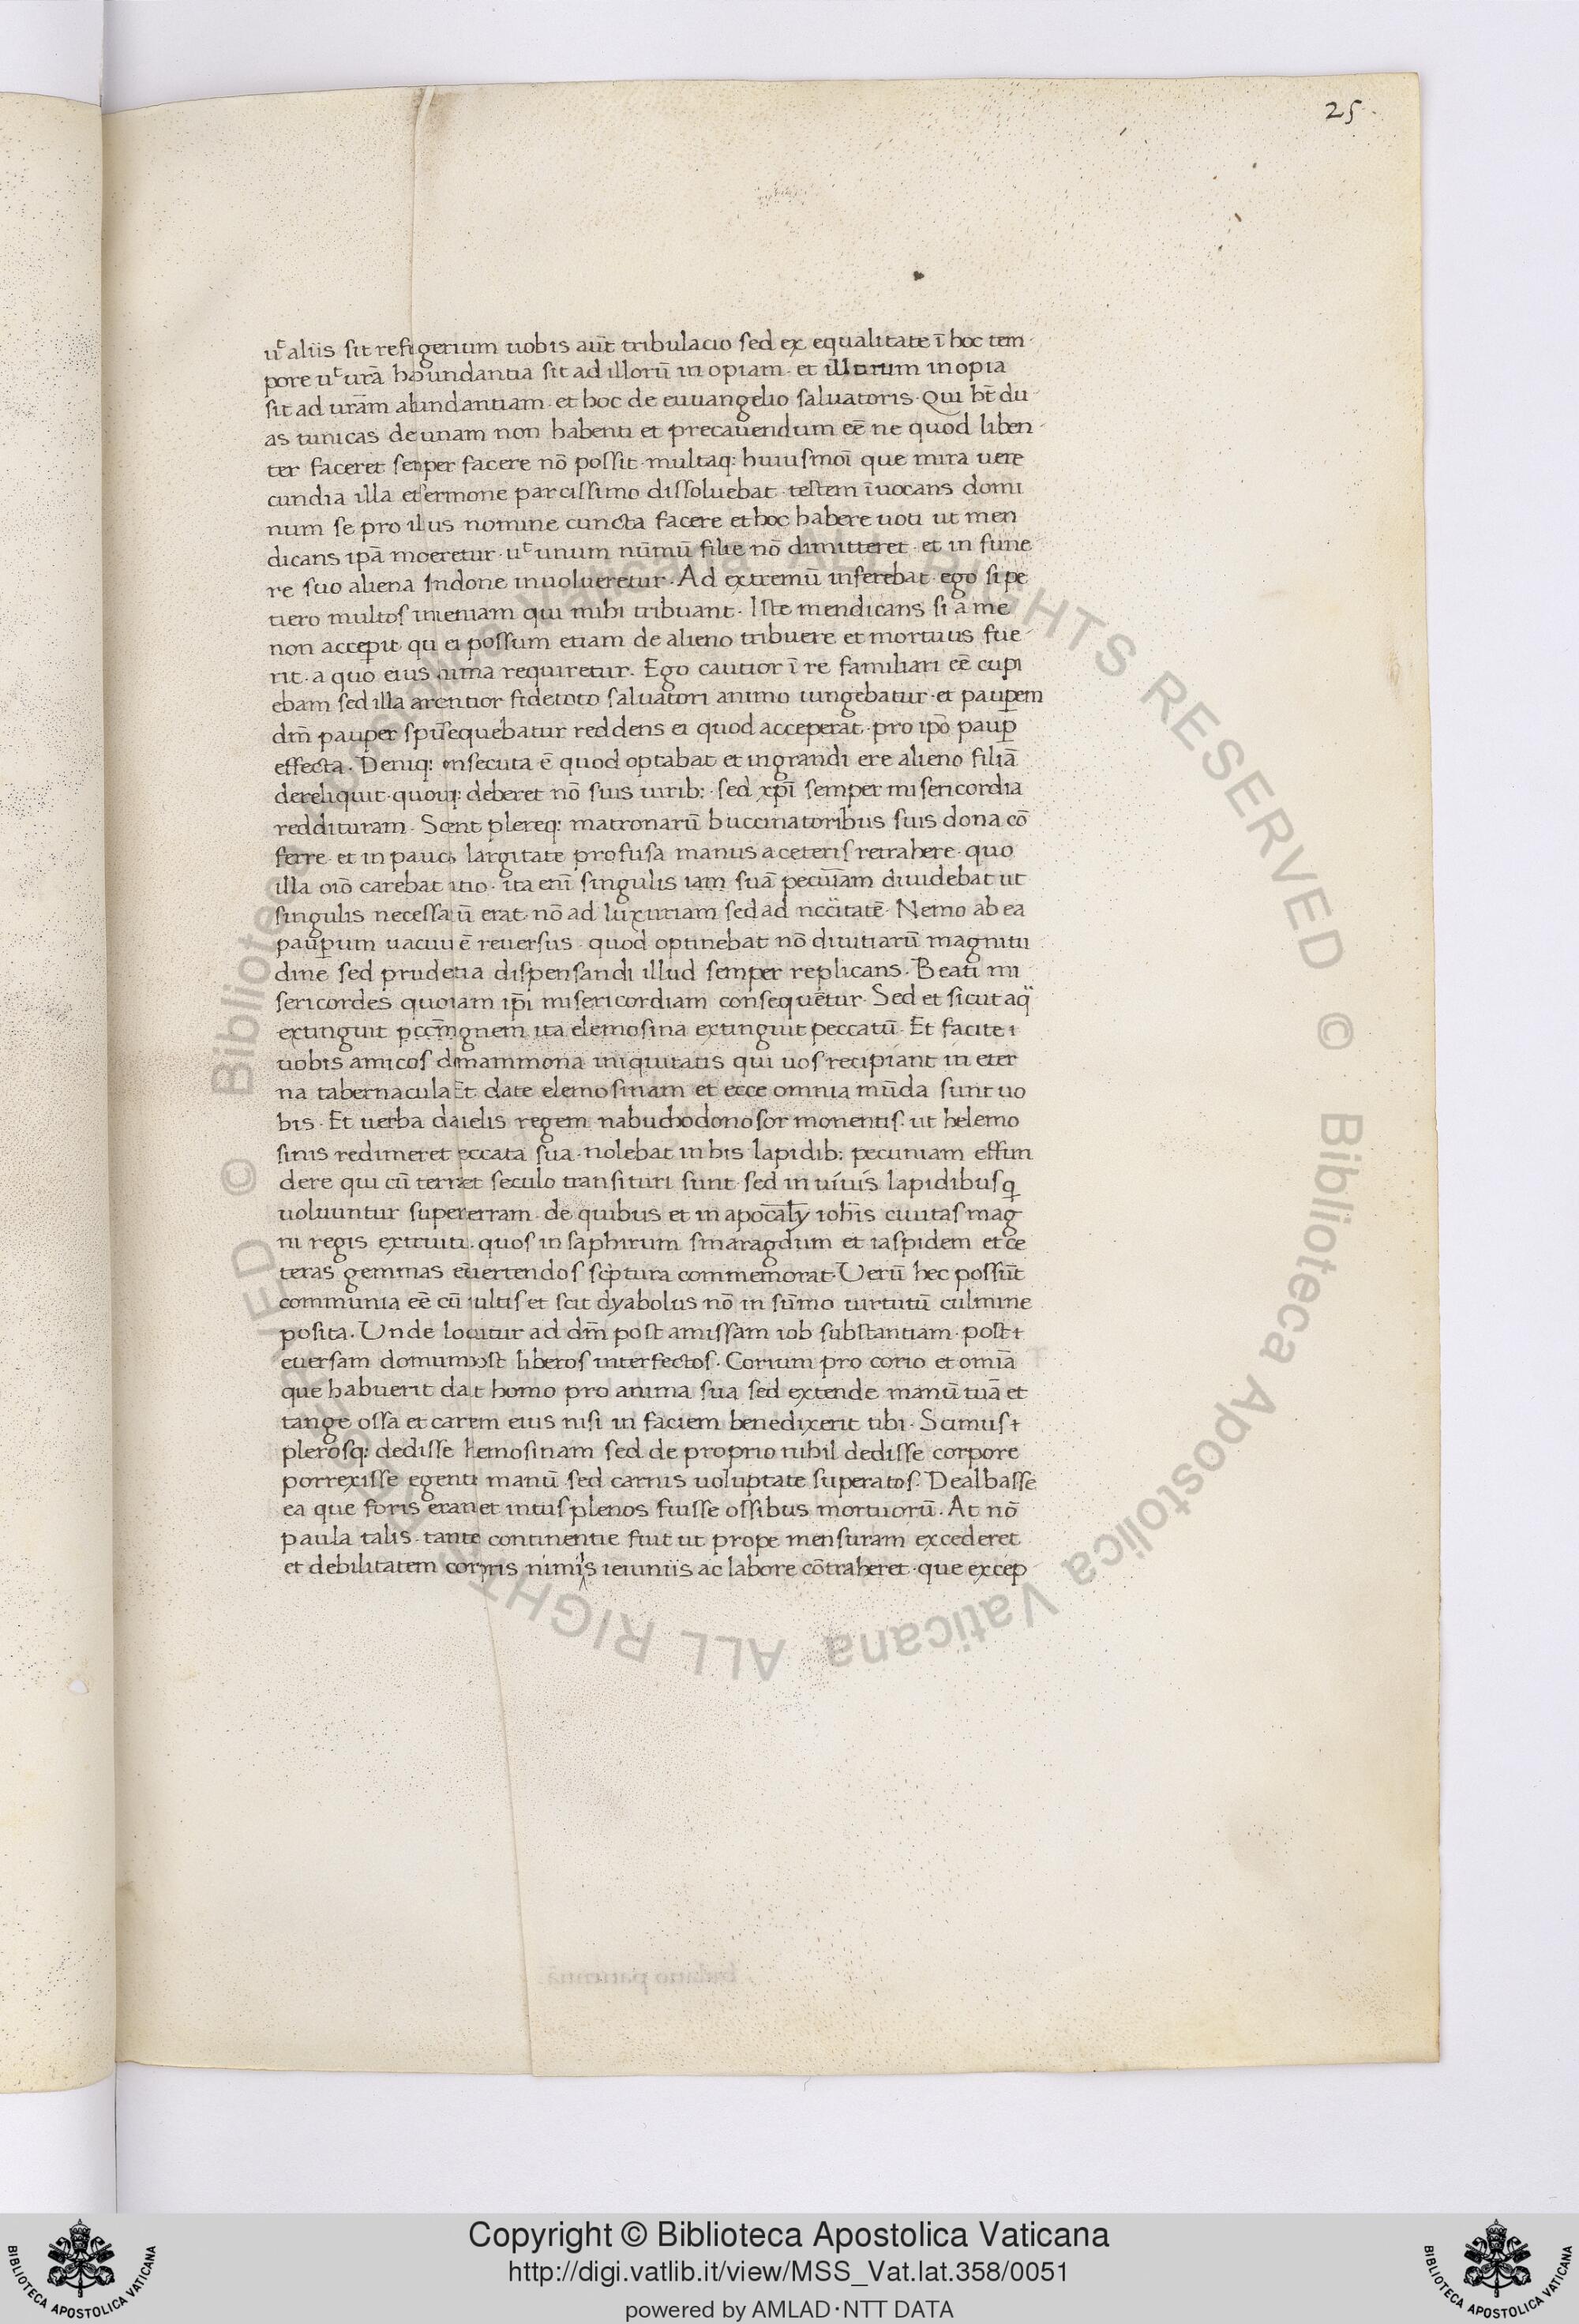 25
ut aliis sit refrigerium uobis aūt tribulacio sed ex equalitate ī hoc tem
pore ut urā habundantia sit ad illorū inopiam · et illorum inopia
sit ad urām abundantiam · et hoc de euuangelio saluatoris · Qui ht̄ du
as tunicas det unam non habenti et precauendum eē ne quod liben
ter faceret semper facere nō possit · multaq: huiusmoī que mira uere
cundia illa et sermone parcissimo dissoluebat · testem īuocans domi
num se pro illius nomine cuncta facere et hoc habere uoti ut men
dicans ipā moreretur · ut unum nūmū filie nō dimitteret · et in fune
re suo aliena sindone inuolueretur · Ad extremū inferebat · ego si pe
tiero multos inueniam qui mihi tribuant · Iste mendicans si a me
non acceperit que ei possum etiam de alieno tribuere et mortuus fue
rit · a quo eius anima requiretur · Ego cautior ī re familiari eē cupi
ebam sed illa ardentior fide toto saluatori animo iungebatur · et paupem
dm̄ pauper spū sequebatur reddens ei quod acceperat · pro ipō paup
effecta · Deniq: consecuta ē quod optabat et in grandi ere alieno filiā
dereliquit · deberet nō suis uirib: · sed xpī semper misericordia
reddituram · Solent plereq: matronarū buccinatoribus suis dona cō
ferre · et in paucos largitate profusa manus a ceteris retrahere · quo
illa oīō carebat uitio · ita enī singulis iam suā pecuīam diuidebat ut
singulis necessariū erat · nō ad luxuriam sed ad nccītatē · Nemo ab ea
paupum uacuus ē reuersus · quod optinebat nō diuitiarū magnitu
dine sed prudentia dispensandi illud semper replicans · Beati mi
sericordes quoniam ipī misericordiam consequētur · Sed et sicut aq̄
extinguit ignem ita elemosina extinguit peccatū · Et facite
uobis amicos de mammona iniquitatis qui uos recipiant in eter
na tabernacula Et date elemosinam et ecce omnia mūda sunt uo
bis · Et uerba danielis regem nabuchodonosor monentis · ut helemo
sinis redimeret peccata sua · nolebat in his lapidib: pecuniam effun
dere qui cū terra et seculo transituri sunt · sed in uiuis lapidibus q
uoluuntur super terram · de quibus et in apocaly iohīs ciuitas mag
ni regis extruitur · quos in saphirum smaragdum et iaspidem et ce
teras gemmas euertendos scptura commemorat · Uerū hec possūt
communia eē cū multis et scit dyabolus nō in sūmo uirtutū culmine
posita · Unde loquitur ad dm̄ post amissam iob substantiam · post
euersam domum post liberos interfectos · Corium pro corio et omīā
que habuerit dabit homo pro anima sua sed extende manū tuā et
tange ossa et carnem eius nisi in faciem benedixerit tibi · Scimus
plerosq: dedisse helemosinam sed de proprio nihil dedisse corpore
porrexisse egenti manū sed carnis uoluptate superatos · Dealbasse
ea que foris erant et intus plenos fuisse ossibus mortuorū · At nō
paula talis · tante continentie fuit ut prope mensuram excederet
et debilitatem corporis nimiis ieiuniis ac labore cōtraheret · que excep
© Biblioteca Apostolica Vaticana ALL RIGHTS RESERVED
© Biblioteca Apostolica Vaticana ALL RIGHTS RESERVED
Copyright © Biblioteca Apostolica Vaticana
http://digi.vatlib.it/view/MSS_Vat.lat.358/0051
powered by AMLAD·NTT DATA
BIBLIOTECA APOSTOLICA VATICANA
BIBLIOTECA APOSTOLICA VATICANA